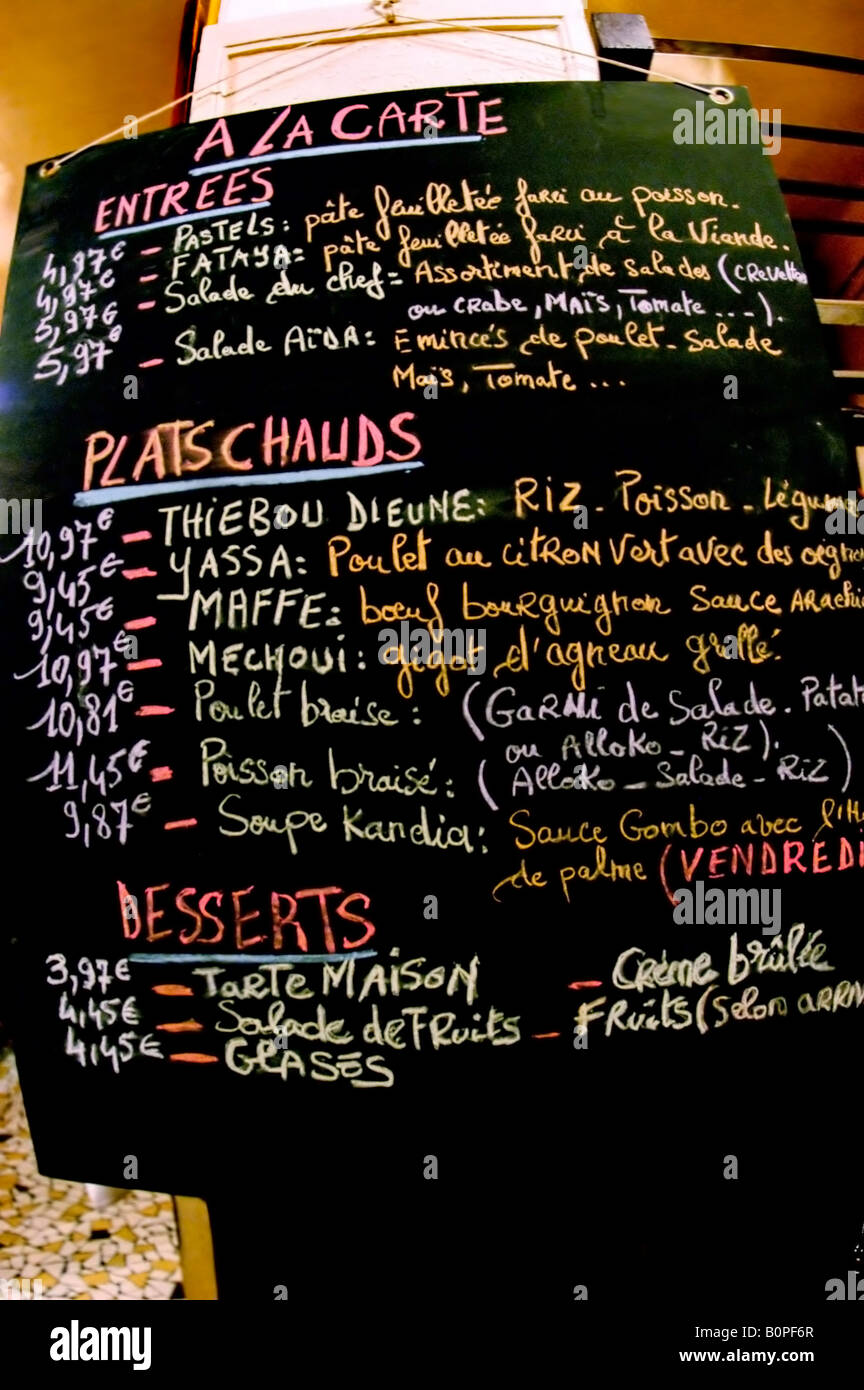 A LA CARTE
ENTREES
4,97€ - PASTELS: pâte feuilletée farci au poisson.
4,97€ - FATAYA: pâte feuilletée farci à la Viande.
5,97€ - Salade du chef= Assortiment de salades (CREVETTES
ou CRABE, MAÏS, Tomate ...).
5,97€ - Salade AÏDA: Emincés de poulet-salade
Maïs, Tomate ...
PLATS CHAUDS
10,97€ - THIEBOU DIEUNE: RIZ - Poisson - Légume
9,45€ - YASSA: Poulet au CITRON Vert avec des oignon
9,45€ - MAFFE: boeuf bourguignon Sauce ARachi
10,97€ - MECHOUI: gigot d'agneau grillé.
10,81€ - Poulet braise: (GARNI de Salade. Patat
ou Alloko - Riz).
11,45€ - Poisson braisé: (Alloko - Salade - Riz)
9,87€ - Soupe Kandia: Sauce Gombo avec l'H
de palme (VENDREDI
DESSERTS
3,97€ - TARTE MAISON - Crème brûlée
4,45€ - Salade de FRuits - FRuits (selon ARRIV
4,45€ - GLASES
alamy
Image ID: B0PF6R
www.alamy.com